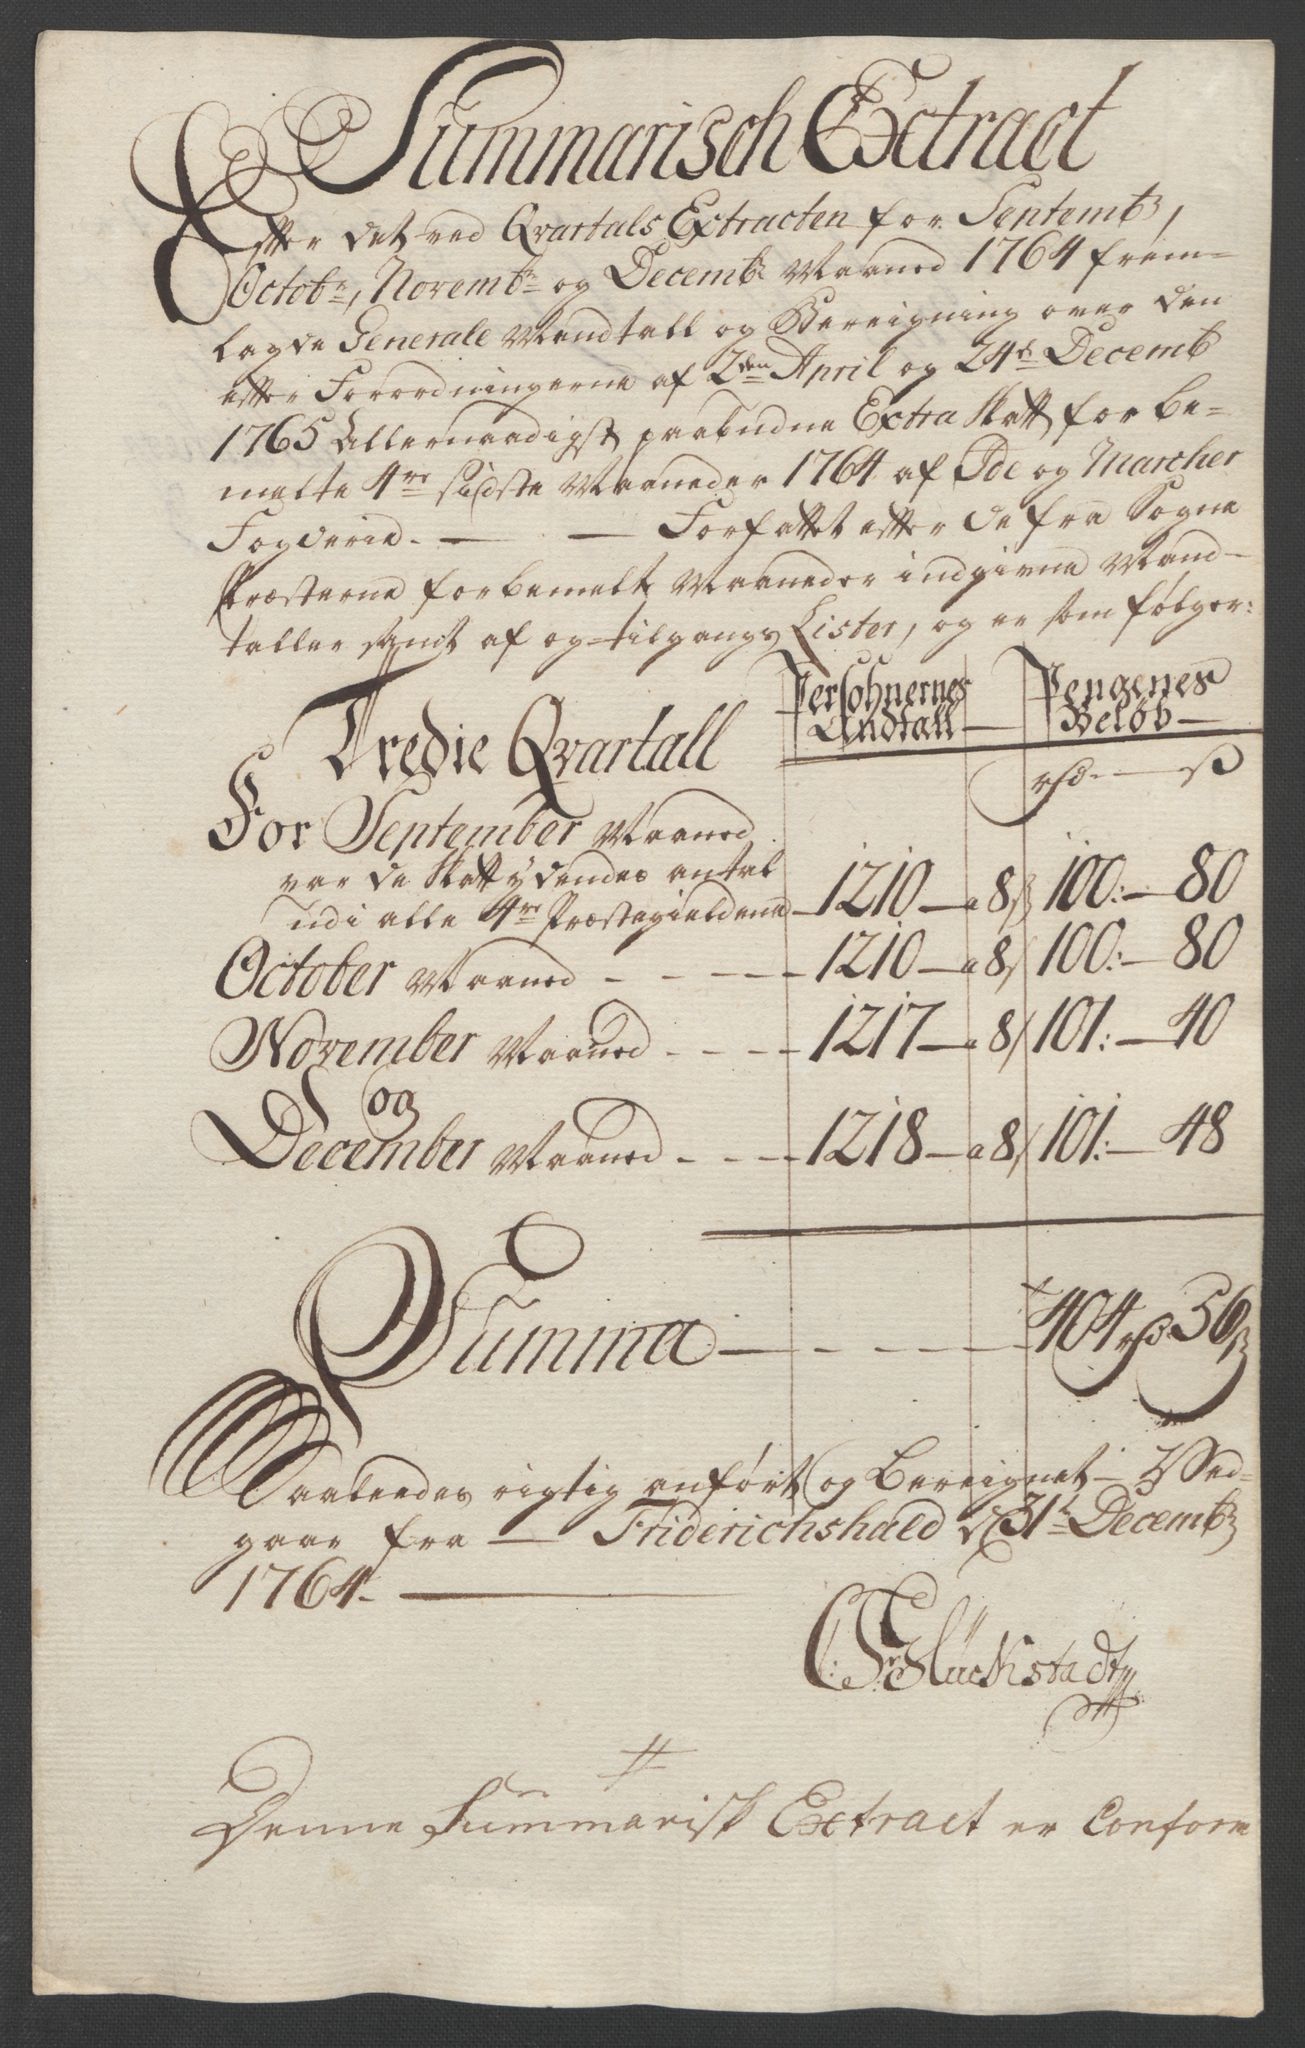 Summarisch Extract
Efter det ved Qvartals Extracten for Septembr,
Octobr, Novembr og Decembr Maaned 1764 frem-
lagde Generale Mandtall og Bereigning over den
efter Forordningerne af 2den April og 24de Decemb
1765 Allernaadigst paabudne Extra Skatt for be-
melte 4re sidste Maaneder 1764 af Ide og Marcher
Fogderie. — — Forfattet efter de fra Sogne
Præsterne for bemelte Maaneder indgivne Mand-
taller samt af og tilgangs Lister, og er som følger:
Persohnernes Andtall — Pengenes Beløb —
Tredie Qvartall
rd. — ß
For September Maaned
var de Skattydendes antal
udi alle 4re Præstegieldene — 1210 — a 8ß 100: — 80
October Maaned - - - - 1210 — a 8ß 100: — 80
November Maaned - - - - 1217 — a 8ß 101: — 40
og
December Maaned - - - - 1218 — a 8ß 101: — 48
Summa — - - - - 404 rd 56ß
Saaledes rigtig anført og Bereignet
gaar fra — Friderichshald d 31te Decembr
1764. —
C: Fr: Glückstadt
Denne Summarisk Extract er Conform